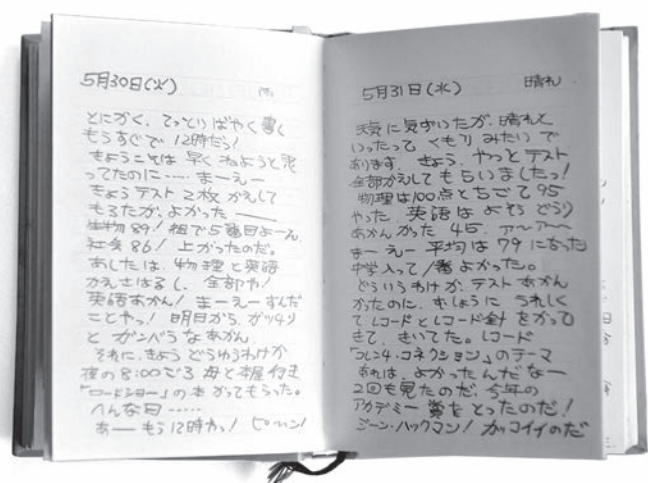 5月30日(火)
とにかく、てっとりばやく書く
もうすぐで 12時だっ!
きょうこそは 早く ねようと思
ってたのに…… まーえー
きょう テスト 2枚 かえして
もろたが、よかった ――
生物 89! 組で 5番目よーん
社会 86! 上がったのだ。
あしたは、物理と英語
かえさはるし、全部や!
英語あかん! まーえーすんだ
ことやっ! 明日から、ガッチリ
と ガンバらなあかん
それに、きょう どうゆうわけか
夜の 8:00ごろ 母と本屋 行き
「ロードショー」の本 かってもらった。
へんな日……
あ―― もう 12時わっ!
5月31日(水) 晴れ
天気に気ずいたが、晴れと
いったって くもり みたいで
あります。きょう、やっと テスト
全部かえして もらいましたっ!
物理は100点とちごて 95
やった 英語は よそう どうり
あかんかった 45. ア〜ア〜
まー えー 平均は 79 になった
中学 入って 1番 よかった。
どういうわけか、テスト あかん
かったのに、むしょうに うれしく
て レコードとレコード針 をかって
きて、きいてた。レコード
「フレンチ・コネクション」のテーマ
あれは、よかったんだ なー
2回も見たのだ。今年の
アカデミー賞を とったのだ!
ジーン・ハックマン! カッコイイのだ